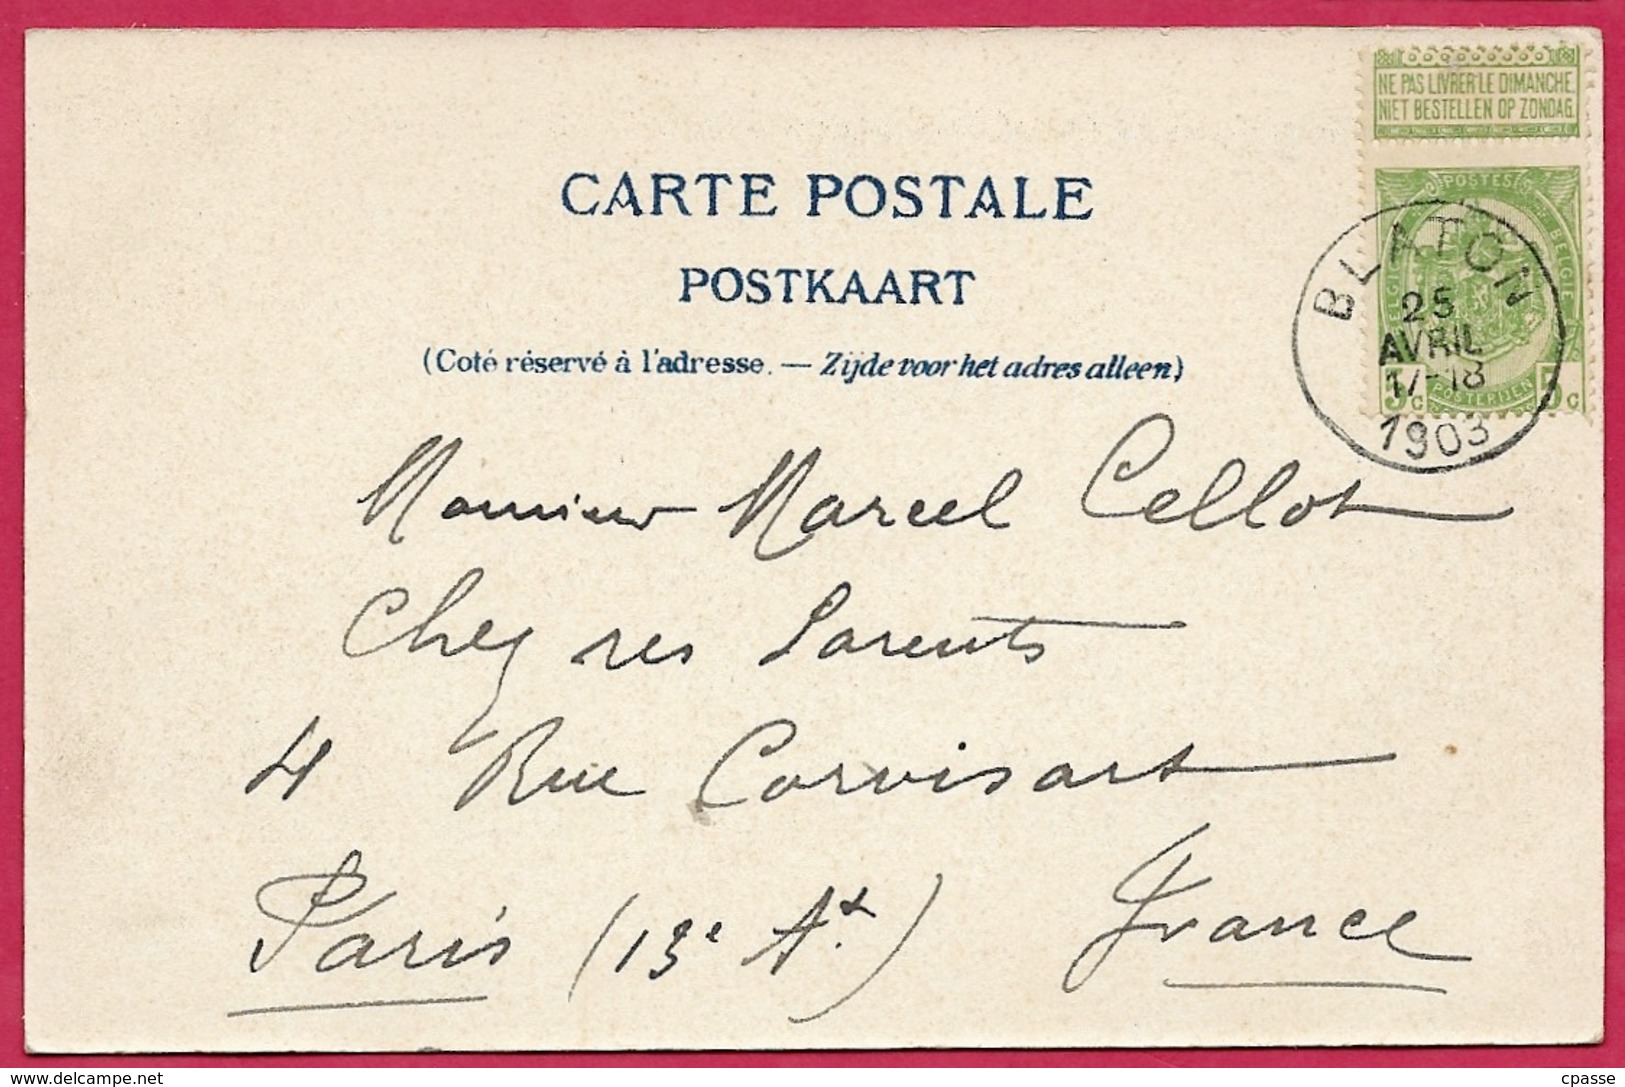 NE PAS LIVRER LE DIMANCHE
NIET BESTELLEN OP ZONDAG
CARTE POSTALE
POSTKAART
(Coté réservé à l'adresse. — Zijde voor het adres alleen)
POSTES
BELGIQUE
BELGIE
POSTERIJEN
5c
5c
BLATON
25
AVRIL
17-18
1903
Monsieur Marcel Cellot
Chez ses Parents
4 Rue Corvisart
Paris (13e At.) France
delcampe.net
cpasse